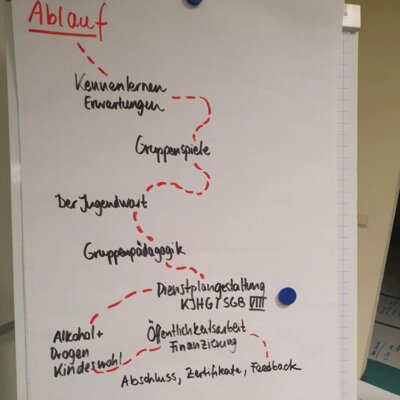 Ablauf
Kennenlernen
Erwartungen
Gruppenspiele
Der Jugendwart
Gruppenpädagogik
Dienstplangestaltung
KJHG / SGB VIII
Alkohol +
Drogen
Kindeswohl
Öffentlichkeitsarbeit
Finanzierung
Abschluss, Zertifikate, Feedback